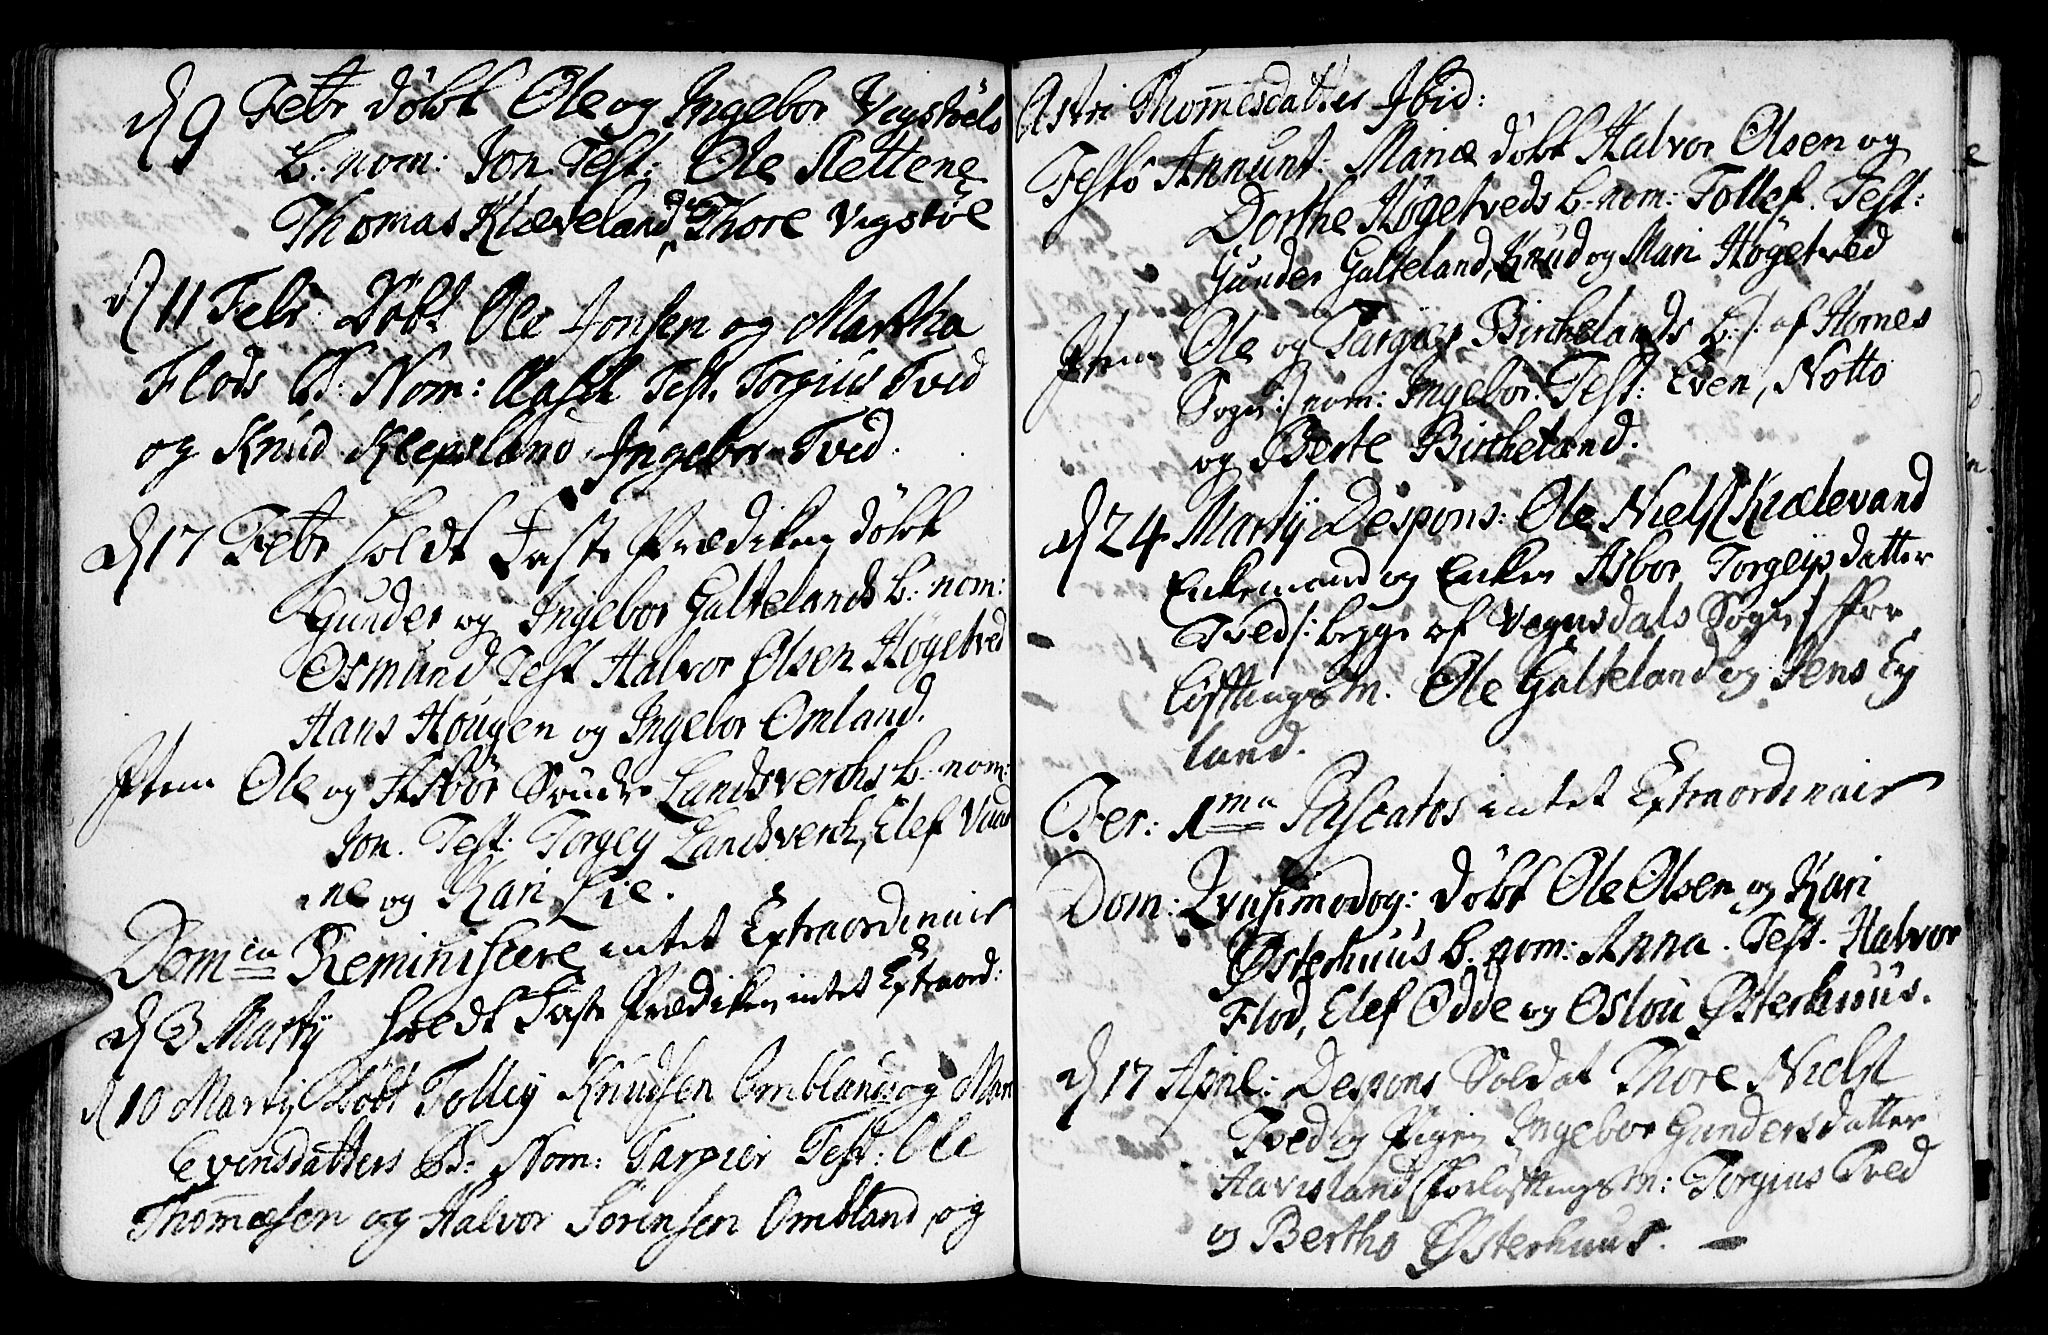 d 9 Febr döbt Ole og Ingebor Vigstöls
b: nom: Jon. Test: Ole Slettene
Thomas Klæveland, Thore Vigstöl
d 11 Febr: Döbt Ole Jonsen og Martha
Flods B: Nom: Aasil Test. Torgius Tved
og Knud Klepsland, Ingebor Tved.
d 17 Febr holdt Faste Prædiken döbt
Gunder og Ingebor Galtelands b: nom:
Osmund Test Halvor Olsen Høgetved
Hans Hougen og Ingebor Omland.
Item Ole og Asbör Söndre Landsverchs b: nom:
Jon. Test: Torgey Landsverch, Elef Vaa
ne og Kari Lie.
Domca Reminiscere intet Extraordinair
d 3 Martij holdt Faste Prædiken intet Extraord:
d 10 Martij Döbt Tolleg Knudsen Omblands og Mari
Evensdatters B: Nom: Targier Test: Ole
Thommesen og Halvor Sörensen Ombland, og
Astri Thommesdatter Ibid:
Festo Annunt: Mariæ döbt Halvor Olsen og
Dorthe Høgetveds b. nom: Tollef. Test:
Gunder Galteland, Knud og Mari Høgetved
Item Ole og Targier Birchelands b: /: af Hornes
Sogn :/ nom: Ingebor. Test: Even, Notto
og Berte Bircheland.
d 24 Martij Despons: Ole Niels: Kiælevand
Enkemand og Enken Asbor Torgeysdatter
Tved /: begge af Vegusdals Sogn :/ For
löftnings M. Ole Galteland og Jens Ey
land.
Fer: 1ma Pascatos intet Extraordinair
Dom: Qvasimodog: döbt Ole Olsen og Kari
Østerhuus b. nom: Anna. Test. Halvor
Flod, Elef Odde og Oslou Østerhuus.
d 17 April: Despons Soldat Thore Nielss
Tved og Pigen Ingebor Gundersdatter
Havisland Forlöftnings M: Torgius Tved
og Bertho Østerhuus.